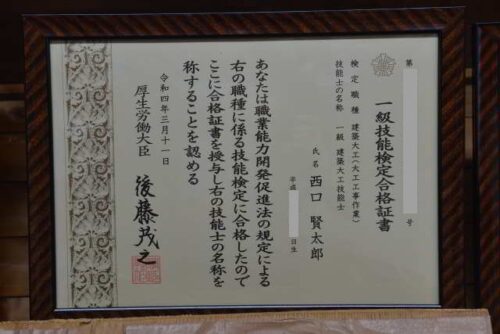 第 号
一級技能検定合格証書
検定職種 建築大工(大工工事作業)
技能士の名称 一級 建築大工技能士
氏名 西口 賢太郎
平成 日生
あなたは職業能力開発促進法の規定による
右の職種に係る技能検定に合格したので
ここに合格証書を授与し右の技能士の名称を
称することを認める
令和四年三月十一日
厚生労働大臣 後藤茂之